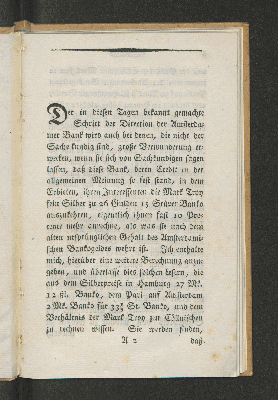 Der in diesen Tagen bekannt gemachte
Schritt der Direction der Amsterda-
mer Bank wird auch bei denen, die nicht der
Sache kundig sind, große Verwunderung er-
wecken, wenn sie sich von Sachkundigen sagen
lassen, daß diese Bank, deren Credit in der
allgemeinen Meinung so fest stand, in dem
Erbieten, ihren Interessenten die Mark Troy
fein Silber zu 26 Gulden 15 Stüver Banko
auszukehren, eigentlich ihnen fast 10 Pro-
cent mehr anrechne, als was sie nach dem
alten ursprünglichen Gehalt des Amsterdam-
schen Bankogeldes wehrt ist. Ich enthalte
mich, hierüber eine weitere Berechnung anzu-
geben, und überlasse dies solchen Lesern, die
aus dem Silberpreise in Hamburg 27 Mk.
12 ßl. Banko, dem Pari auf Amsterdam
2 Mk. Banko für St. Banko, und dem
Verhältnis der Mark Troy zur Cöllnischen
zu rechnen wissen. Sie werden finden,
A 2 daß